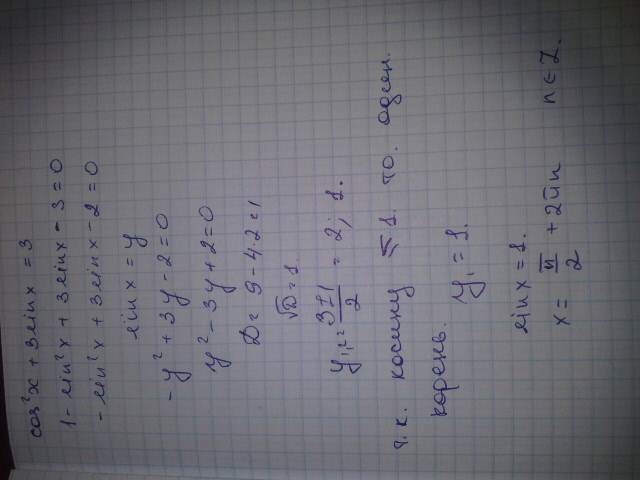 cos²x + 3sinx = 3
1 - sin²x + 3sinx - 3 = 0
- sin²x + 3sinx - 2 = 0
sinx = y
-y² + 3y - 2 = 0
y² - 3y + 2 = 0
D = 9 - 4·2 = 1
√D = 1
y₁,₂ = (3±1)/2 = 2; 1.
т.к. косинус ≤ 1. то. один.
корень. y₁ = 1.
sinx = 1.
x = π/2 + 2πn n ∈ Z.